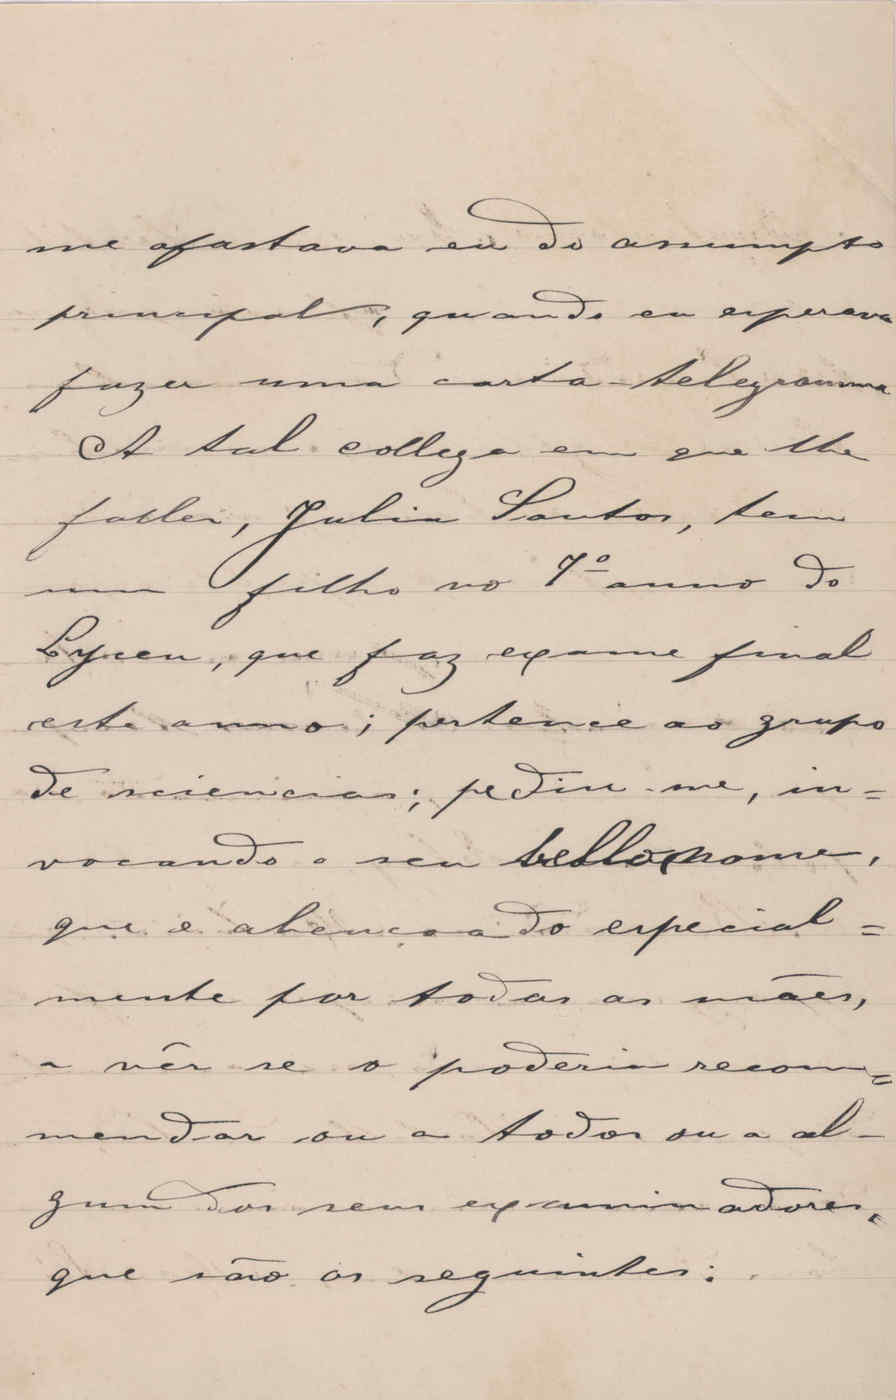 me afastava eu do assumpto
principal, quando eu esperava
fazer uma carta-telegramma
A tal collega em que lhe
fallei, Julia Santos, tem
um filho no 7º anno do
Lyceu, que faz exame final
este anno; pertence ao grupo
de sciencias; pediu-me, in=
vocando o seu bello nome,
que é abençoado especial=
mente por todas as mães,
a vêr se o poderia recom=
mendar ou a todos ou a al-
gum dos seus examinadores,
que são os seguintes: